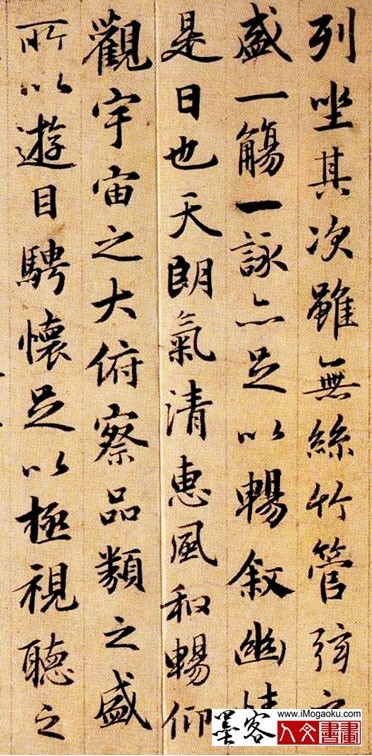 列坐其次雖無絲竹管弦之
盛一觴一詠亦足以暢敘幽情
是日也天朗氣清惠風和暢仰
觀宇宙之大俯察品類之盛
所以遊目騁懷足以極視聽之
墨客
www.iMogaoku.com
人文書畫